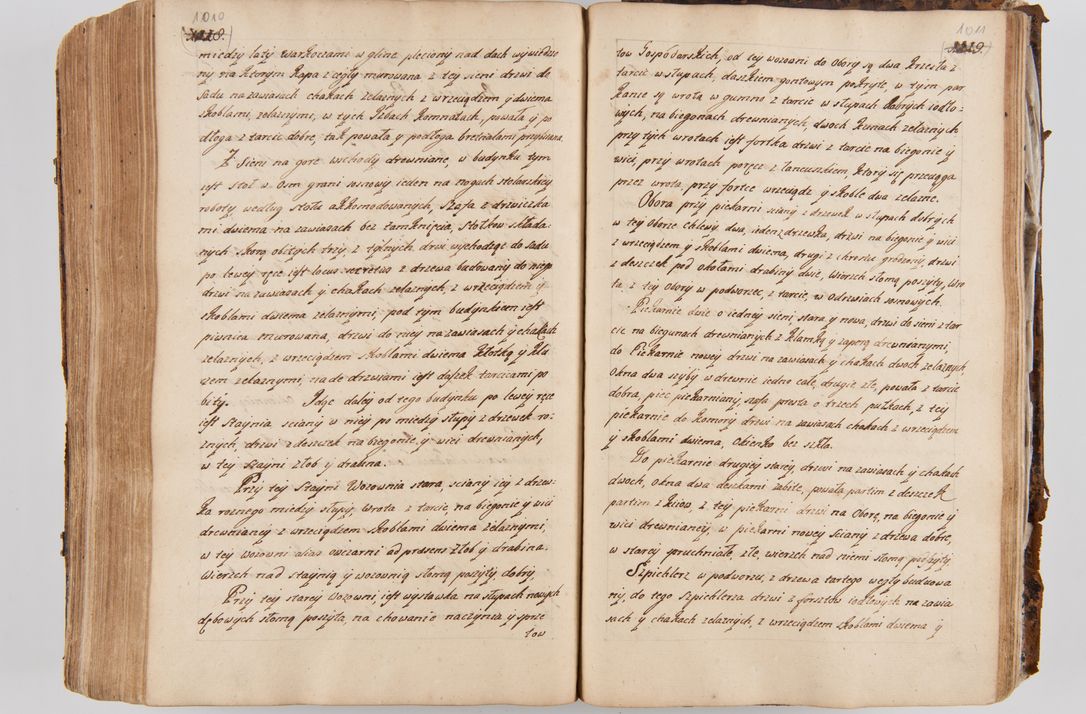 1010
1228.
między łaty warkoczami w glinę pleciony nad dach wywiedzio
ny na ktorym Kapa z cegły murowana z tey sieni drzwi do
sadu na zawiasach chakach zelaznych z wrzeciądzem y dwiema
skoblami, zelaznymi, w tych Izbach Komnatach, powała y po
dłoga z tarcic dobre, tak powała y podłoga bretnalami przybijana.
Z Sieni na gorę wschody drewniane, w budynku tym
iest Stoł w Osm grani sosnowy ieden na nogach stolarskiey
roboty według stołu akkomodowanych, Szafa z drzwiczka
mi dwiema na zawiasach bez zamknięcia, Stołkow składa-
nych skorą obitych trzy, z tylnych drzwi wychodząc do sadu
po lewey ręce iest locus secretus z drzewa budowany do niego
drzwi na zawiasach y chakach zelaznych z wrzeciądzem y
skoblami dwiema zelaznymi, pod tym budynkiem iest
piwnica murowana, drzwi do niey na zawiasach y chakach
zelaznych, z wrzeciądzem skoblami dwiema Kłotką y klu
czem zelaznymi, nade drzwiami iest daszek tarcicami po
bity. Idąc daley od tego budynku po lewey ręce
iest Staynia sciany w niey po między słupy z drzewek ro-
znych, drzwi z deszczek na biegonie y wici drewnianych,
w tey stayni złob y drabina.
Przy tey Stayni Wozownia stara, sciany iey z drzew-
ka roznego między słupy, wrota z tarcic na biegonie y wici
drewnianey z wrzeciądzem skoblami dwiema zelaznymi,
w tey wozowni alias owczarni ad præsens złob y drabina.
Wierzch nad staynią y wozownią słomą poszyty dobry.
Przy tey starey Wozowni, iest wystawka na słupach nowych
dębowych słomą poszyta, na chowanie naczynia y sprzę
tow
1011
1229.
tow Gospodarskich, od tey wozowni do Obory są dwa Krzesła z
tarcic w słupach, daszkiem gontowym pokryte, w tym par
kanie są wrota w gumno z tarcic w słupach dobrych iodło-
wych, na biegonach drewnianych, dwoch kunach zelaznych
przy tych wrotach iest fortka drzwi z tarcic na biegonie y
wici, przy wrotach poręcz z łancuszkiem, ktory się przeciąga
przez wrota, przy fortce wrzeciądz y skoble dwa zelazne.
Obora przy piekarni sciany z drzewek w słupach dobrych
w tey Oborze Chlewy dwa, ieden z drzewka, drzwi na biegonie y wici
z wrzeciądzem y skoblami dwiema, drugi z chrostu grodzony, drzwi
z deszczek pod okołami drabiny dwie, wierzch słomą poszyty, wro
ta z tey Obory w podworzec, z tarcic, w odrzwiach sosnowych.
Piekarnie dwie o iedney sieni stara y nowa, drzwi do sieni z tar
cic na biegunach drewnianych z klamką y zaporą drewnianymi,
do Piekarnie nowey drzwi na zawiasach y chakach dwoch zelaznych,
Okna dwa szyby w drewnie iedno całe, drugie złe, powała z tarcic
dobra, piec piekarniany, szafa prosta o trzech pułkach, z tey
piekarnie do komory drzwi na zawiasach chakach z wrzeciądzem
y skoblami dwiema, Okienko bez szkła.
Do piekarnie drugiey starey, drzwi na zawiasach y chakach
dwoch, okna dwa deszkami zabite, powała partim z deszczek
partim z kiiow, z tey piekarni drzwi na Oborę, na biegonie y
wici drewnianey, w piekarni nowey sciany z drzewa dobre,
w starey pruchniałe, złe, wierzch nad niemi słomą podszyty.
Szpichlerz w podworzu, z drzewa tartego węgły budowa
ny, do tego Szpichlerza drzwi z forsztow iodłowych na zawia
sach y chakach zelaznych z wrzeciądzem skoblami dwiema y